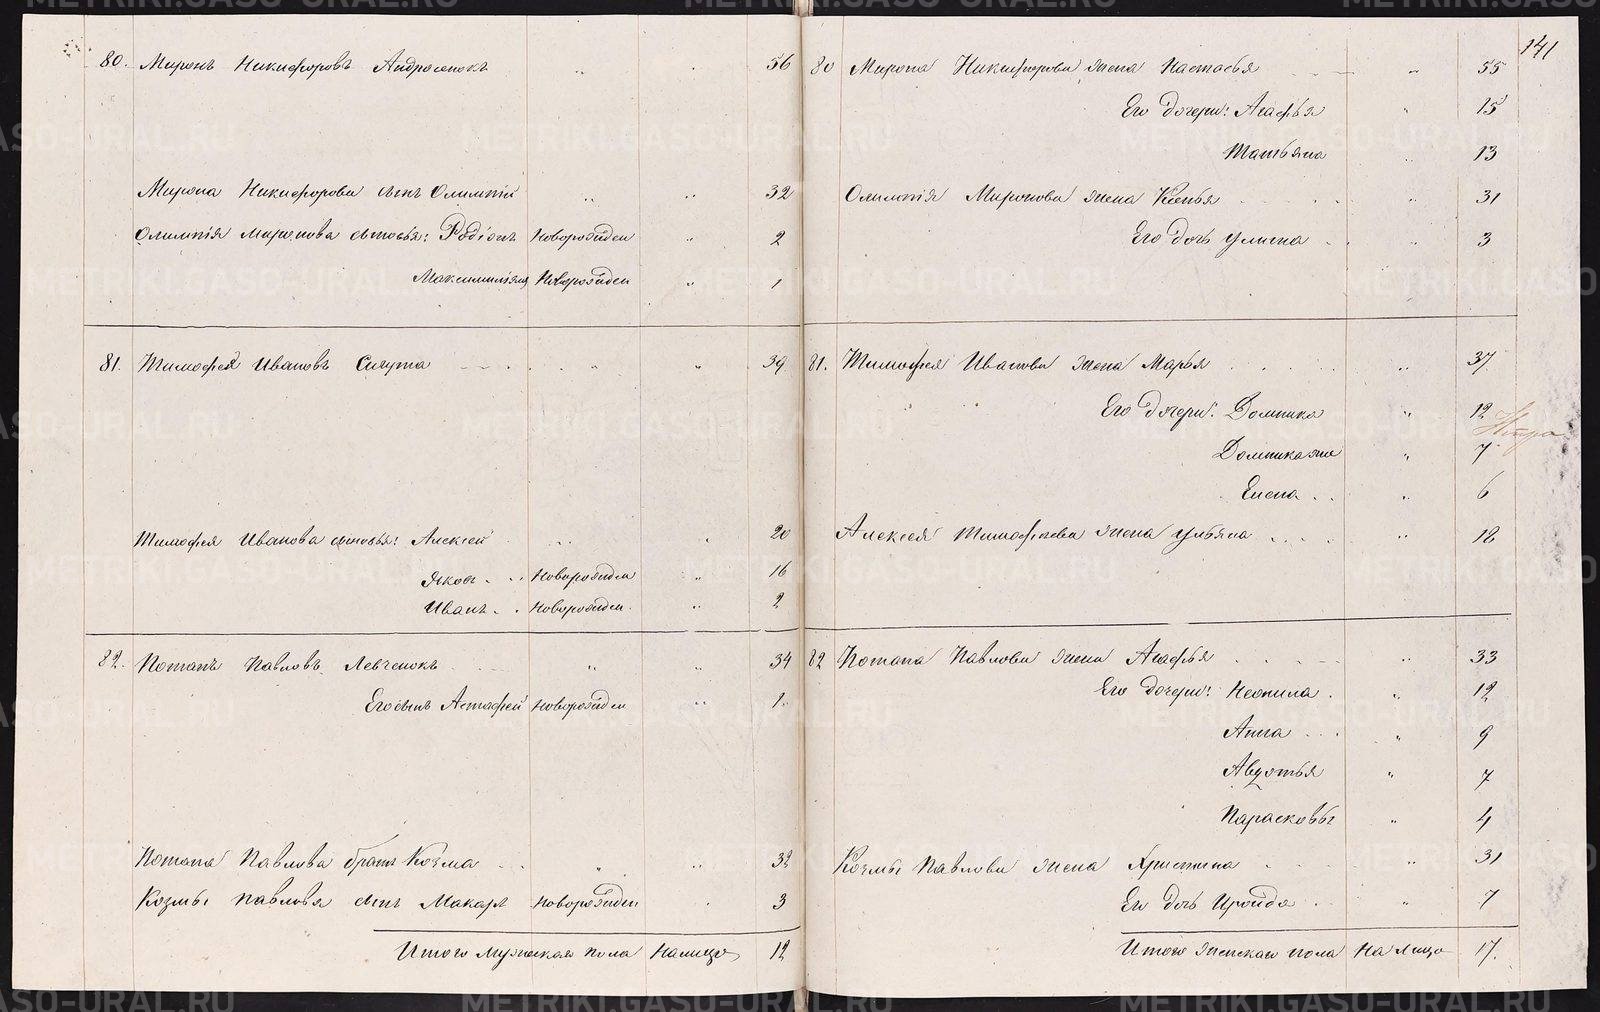 141
80. Миронъ Никифоровъ Андросенокъ 56
Мирона Никифорова сынъ Олимпій 32
Олимпія Миронова сыновья: Родіонъ Новорожден 2
Максимиліянъ Новорожден 1
81. Тимофей Ивановъ Сицута 39
Тимофея Иванова сыновья: Алексей 20
Яковъ Новорожден 16
Иванъ Новорожден. 2
82. Потапъ Павловъ Левченокъ 34
Его сынъ Астафей Новорожден 1
Потапа Павлова братъ Козма 32
Козмы Павлова сынъ Макаръ Новорожден 3
Итого мужеска пола На лицо 12
80 Мирона Никифорова жена Настасья 55
Его дочери: Агафья 15
Татьяна 13
Олимпія Миронова жена Ксенья 31
Его дочь Улита 3
81. Тимофея Иванова жена Марья 37
Его дочери: Домника 12
Домника же 7
Елена 6
Алексея Тимофеева жена Ульяна 18
82 Потапа Павлова жена Агафья 33
Его дочери: Неонила 12
Анна 9
Авдотья 7
Парасковья 4
Козмы Павлова жена Христина 31
Его дочь Ироида 7
Итого женска пола На лицо 17.
METRIKI.GASO-URAL.RU